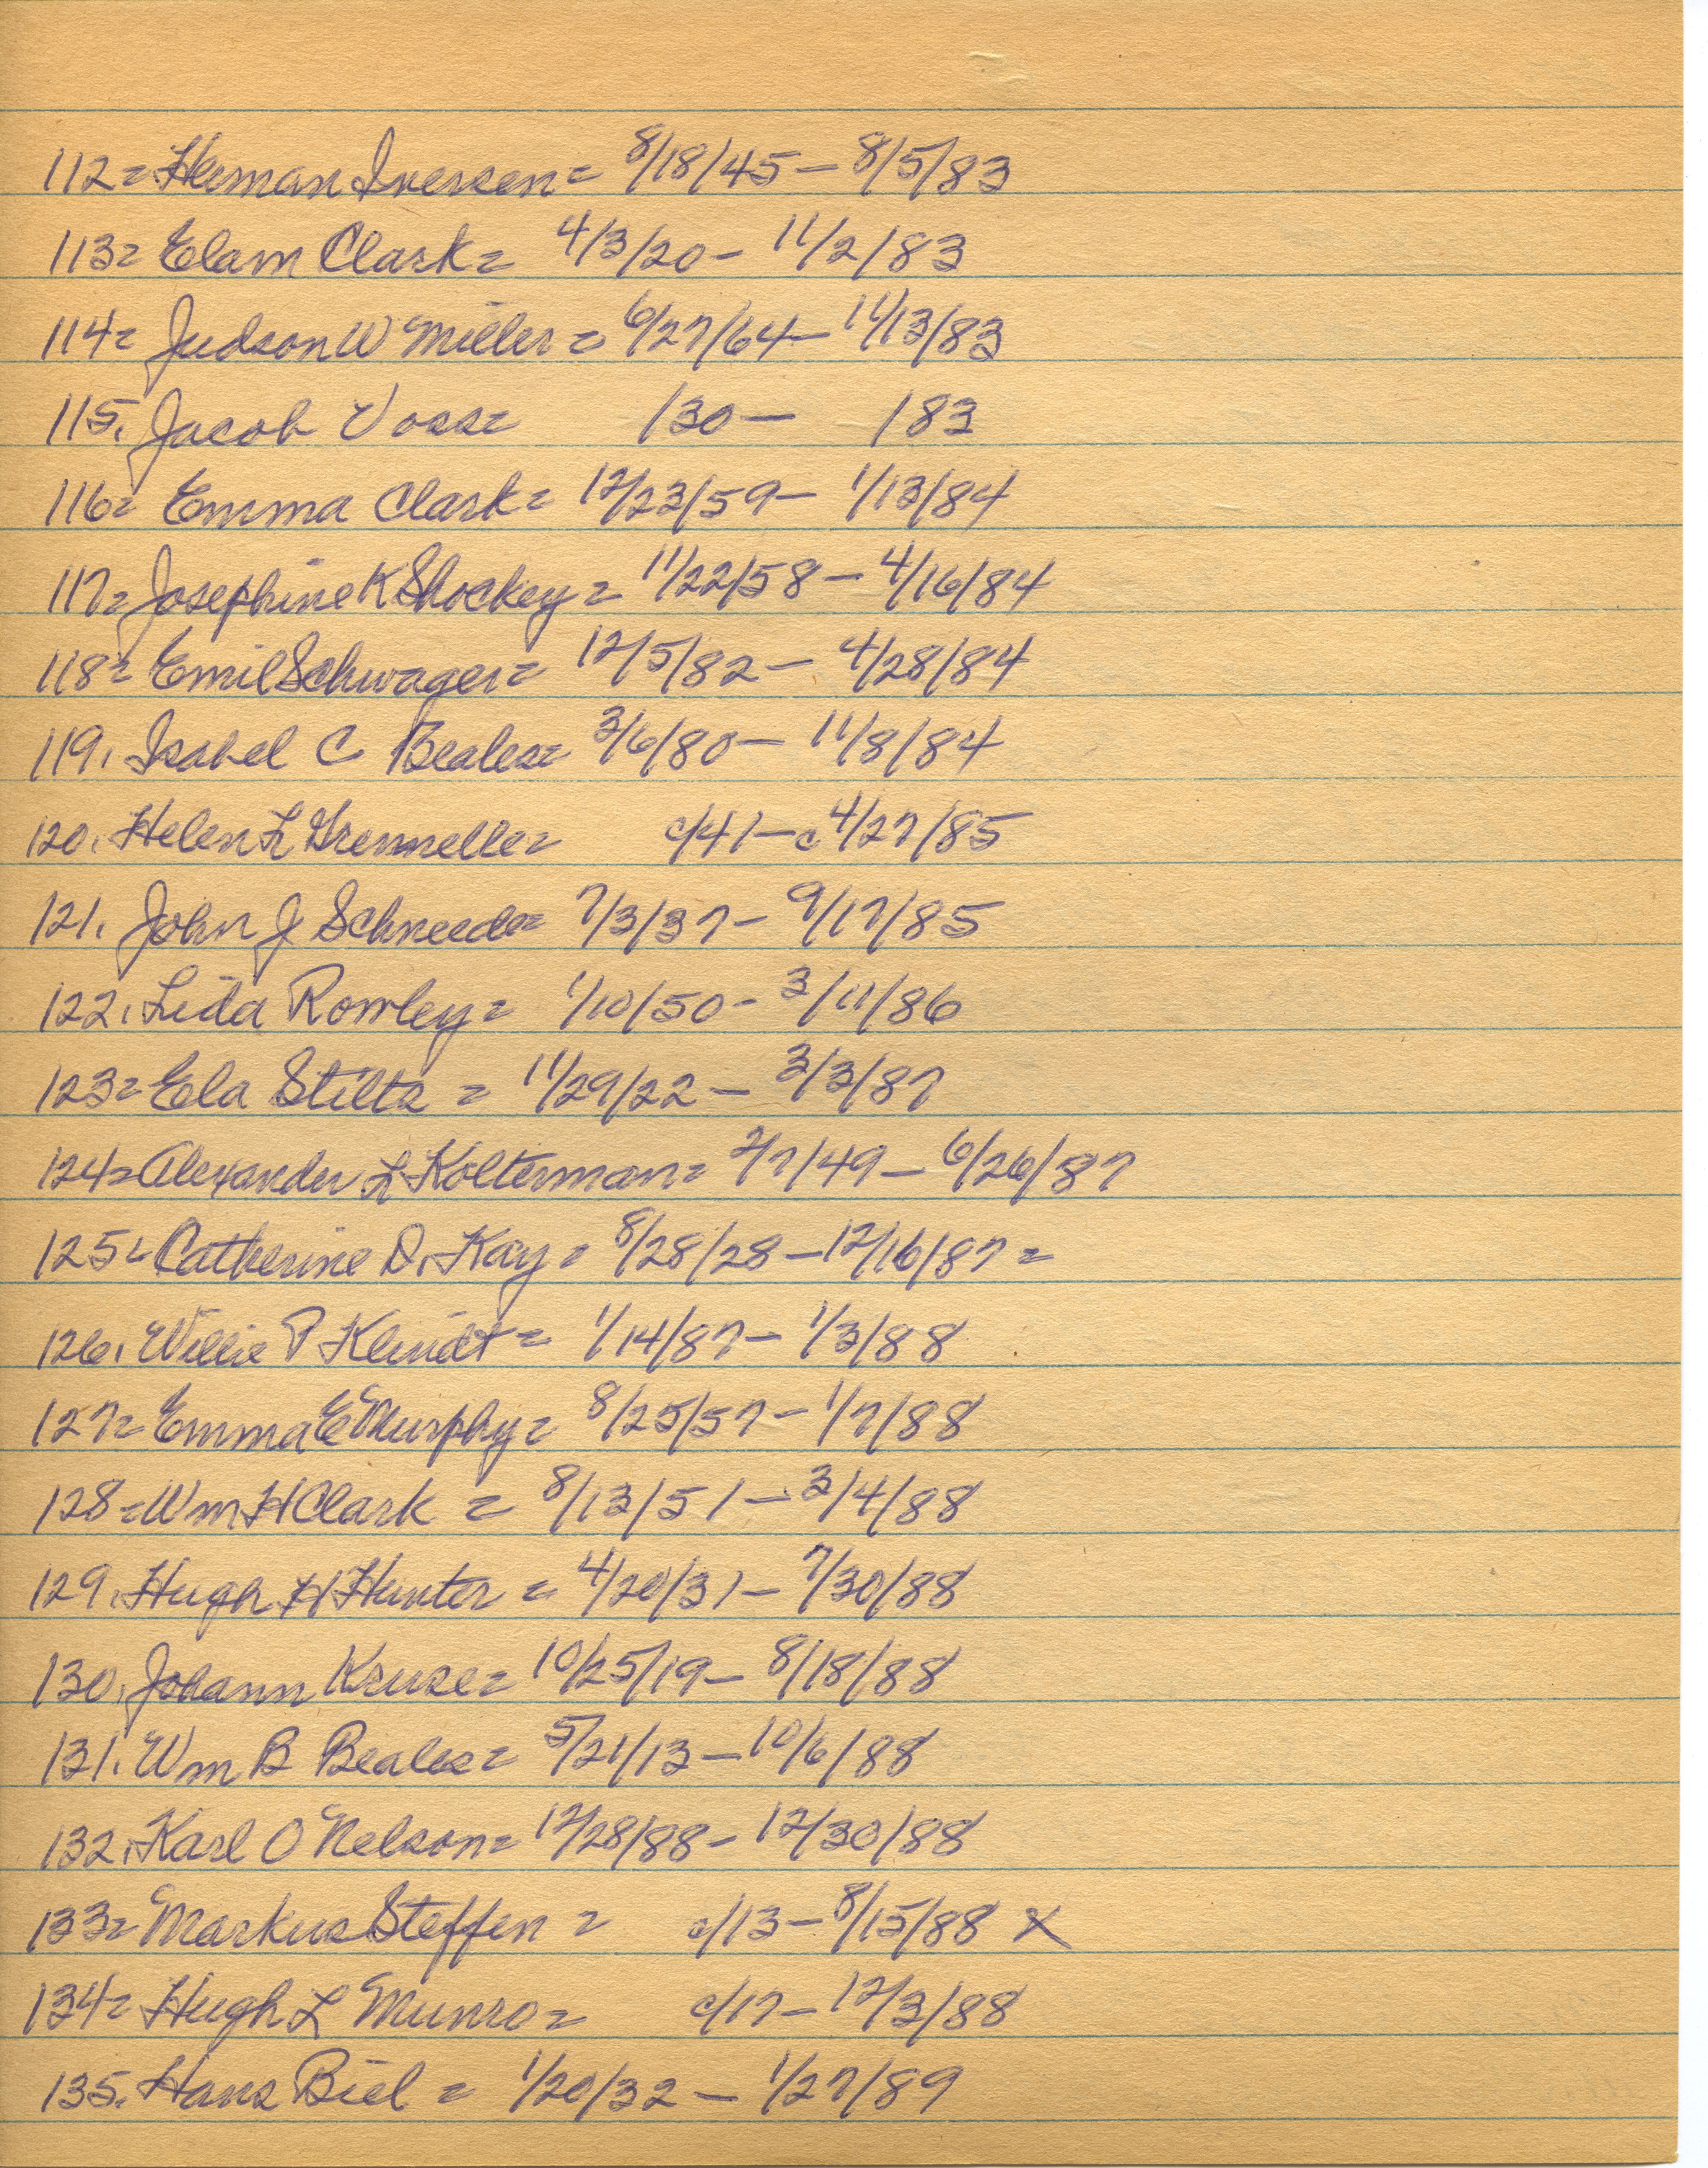 112= Herman Iversen= 8/18/45 - 8/5/83
113= Elam Clark= 4/3/20 - 11/2/83
114= Judson W Miller = 6/27/64 - 11/13/83
115. Jacob Voss= /30 - /83
116= Emma Clark= 12/23/59 - 1/13/84
117= Josephine K Shockey= 11/22/58 - 4/16/84
118= Emil Schwager= 12/5/82 - 4/28/84
119. Isabel C Beales= 3/6/80 - 11/8/84
120. Helen L Grennelle= c/41 - c 4/27/85
121. John J Schneede= 7/3/37 - 9/17/85
122. Lida Rowley= 1/10/50 - 3/11/86
123= Ela Stilts = 11/29/22 - 3/3/87
124= Alexander L Kolterman= 2/7/49 - 6/26/87
125= Catherine D. Kay= 8/28/28 - 12/16/87 =
126. Willie P Klindt= 1/14/87 - 1/3/88
127= Emma E Murphy= 8/25/57 - 1/7/88
128= Wm H Clark = 8/13/51 - 3/4/88
129. Hugh H Hunter = 4/20/31 - 7/30/88
130. Johann Kruse= 10/25/19 - 8/18/88
131. Wm B Beales= 5/21/13 - 10/6/88
132. Karl O Nelson= 12/28/88 - 12/30/88
133= Markus Steffen = c/13 - 8/15/88 X
134= Hugh L Munro= c/17 - 12/3/88
135. Hans Biel = 1/20/32 - 1/27/89